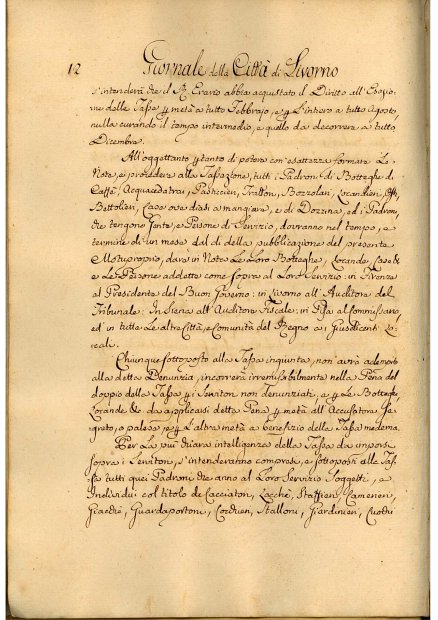 12 Giornale della Città di Livorno
s'intenderà che il R. Erario abbia acquistato il Diritto all'Esazio-
ne delle Tasse p metà a tutto Febbrajo, e p l'intiero a tutto Agosto,
nulla curando il tempo intermedio, e quello da decorrere a tutto
Dicembre.
All'oggetto p tanto di potere con esattezza formare Le
Note, e procedere alla Tassazione, tutti i Padroni di Botteghe di
Caffè, Acquacedratai, Pasticcieri, Trattori, Bozzolari, Locandieri, Osti,
Bettolieri, Case ove diasi a mangiare, e di Dozzina, ed i Padroni,
che tengono Gente, e Persone di Servizio, dovranno nel tempo, e
termine di un mese dal dì della pubblicazione del presente
Motuproprio, dare in Nota Le Loro Botteghe, Locande, Case &
e Le Persone addette come sopra al Loro Servizio: in Firenze
al Presidente del Buon Governo: in Livorno all'Auditore del
Tribunale: In Siena all'Auditore Fiscale: in Pisa al Commissario,
ed in tutte Le altre Città, e Comunità del Regno a i Giusdicenti Lo-
cali.
Chiunque sottoposto alla Tassa inquinta, non avrà adempito
alla detta Denunzia, incorrerà irremissibilmente nella Pena del
doppio della Tassa p i Servitori non denunziati, e p Le Botteghe,
Locande & da applicarsi detta Pena p metà all'Accusatore se-
greto, o palese, e p L'altra metà a benefizio della Tassa medema.
Per La più chiara intelligenza della Tassa da imporsi
sopra i Servitori, s'intenderanno compresi, e sottoposti alla Tas-
sa tutti quei Padroni che anno al Loro Servizio Soggetti, e
Individui col titolo di Cacciatori, Lacchè, Staffieri, Camerieri,
Giacchè, Guardaportoni, Cocchieri, Stalloni, Giardinieri, Cuochi